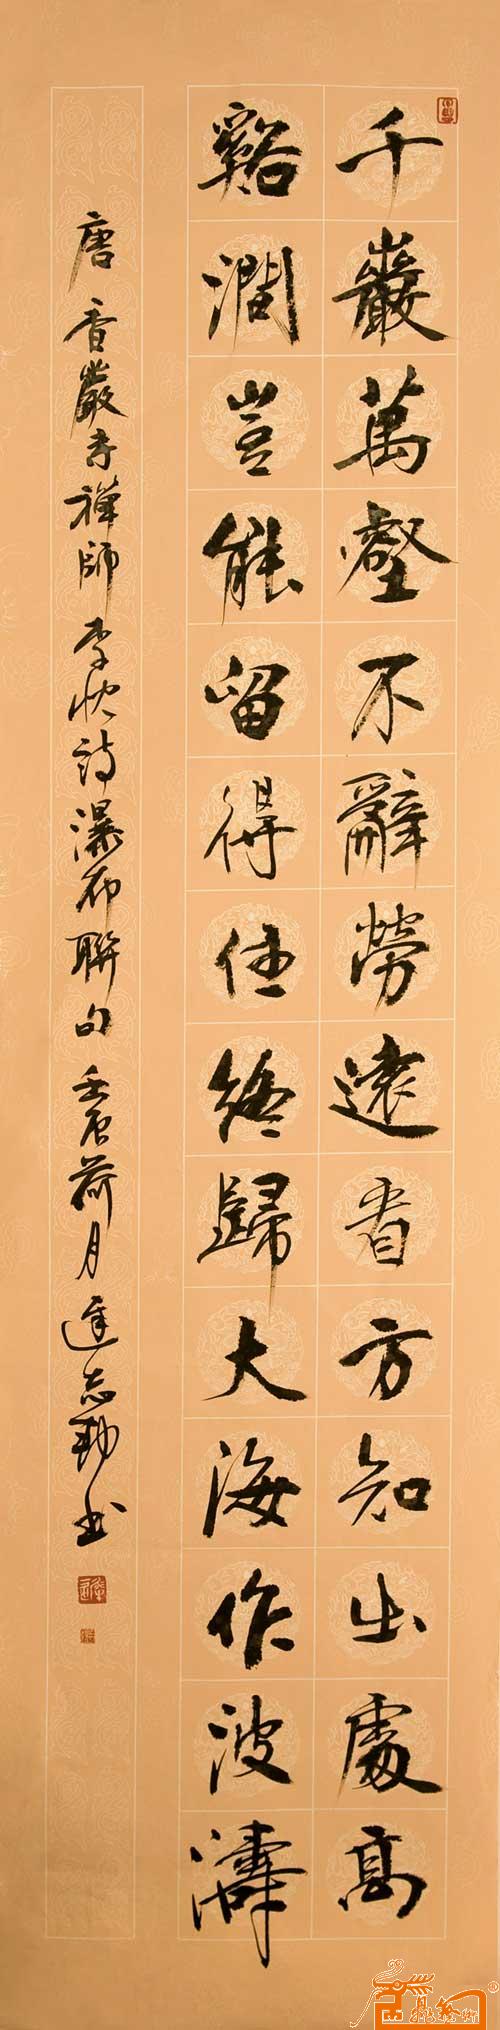 千巖萬壑不辭勞遠看方知出處高
谿澗豈能留得住終歸大海作波濤
唐香嚴寺禪師李忱詩瀑布聯句壬辰荷月達志勤书